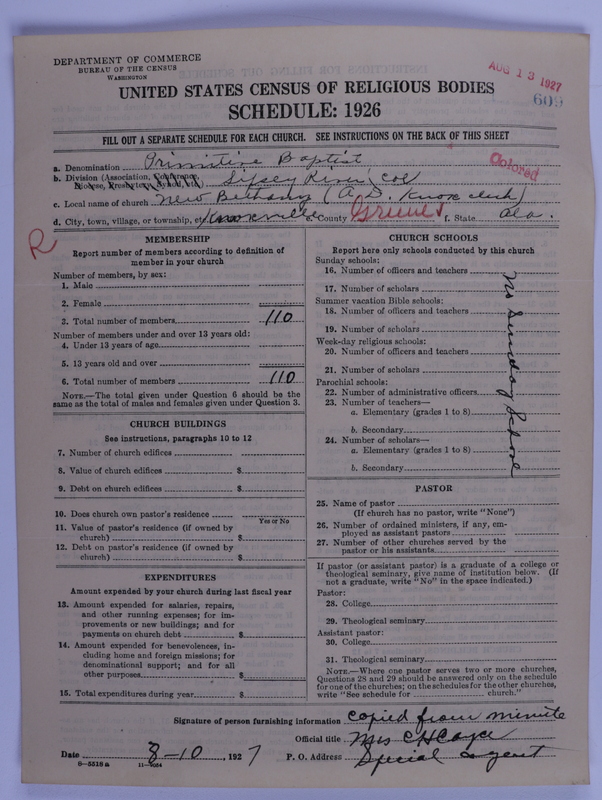 DEPARTMENT OF COMMERCE
BUREAU OF THE CENSUS
WASHINGTON
AUG 13 1927
609
UNITED STATES CENSUS OF RELIGIOUS BODIES
SCHEDULE: 1926
FILL OUT A SEPARATE SCHEDULE FOR EACH CHURCH. SEE INSTRUCTIONS ON THE BACK OF THIS SHEET
a. Denomination Primitive Baptist
Colored
b. Division (Association, Conference, Diocese, Presbytery, Synod, etc.) Sipsey River Col
c. Local name of church New Bethany (A.D. Knox clerk)
d. City, town, village, or township, or Knoxville e. County Greene f. State Ala.
R
MEMBERSHIP
Report number of members according to definition of
member in your church
Number of members, by sex:
1. Male
2. Female
3. Total number of members 110
Number of members under and over 13 years old:
4. Under 13 years of age
5. 13 years old and over
6. Total number of members 110
NOTE.—The total given under Question 6 should be
same as the total of males and females given under Question 3.
CHURCH BUILDINGS
See instructions, paragraphs 10 to 12
7. Number of church edifices
8. Value of church edifices $
9. Debt on church edifices $
10. Does church own pastor's residence
Yes or No
11. Value of pastor's residence (if owned by
church) $
12. Debt on pastor's residence (if owned by
church) $
EXPENDITURES
Amount expended by your church during last fiscal year
13. Amount expended for salaries, repairs,
and other running expenses; for im-
provements or new buildings; and for
payments on church debt $
14. Amount expended for benevolences, in-
cluding home and foreign missions; for
denominational support; and for all
other purposes $
15. Total expenditures during year $
CHURCH SCHOOLS
Report here only schools conducted by this church
Sunday schools:
16. Number of officers and teachers
17. Number of scholars
Summer vacation Bible schools:
18. Number of officers and teachers
19. Number of scholars
Week-day religious schools:
20. Number of officers and teachers
21. Number of scholars
Parochial schools:
22. Number of administrative officers
23. Number of teachers—
a. Elementary (grades 1 to 8)
b. Secondary
24. Number of scholars—
a. Elementary (grades 1 to 8)
b. Secondary
No Sunday School
PASTOR
25. Name of pastor
(If church has no pastor, write "None")
26. Number of ordained ministers, if any, em-
ployed as assistant pastors
27. Number of other churches served by the
pastor or his assistants
If pastor (or assistant pastor) is a graduate of a college or
theological seminary, give name of institution below. (If
not a graduate, write "No" in the space indicated.)
Pastor:
28. College
29. Theological seminary
Assistant pastor:
30. College
31. Theological seminary
NOTE.—Where one pastor serves two or more churches,
Questions 28 and 29 should be answered only on the schedule
for one of the churches; on the schedules for the other churches,
write "See schedule for church."
Signature of person furnishing information copied from minute
Official title Mrs C H Cayce
Date 8-10, 1927 P. O. Address Special agent
8-5518 a 11-9034